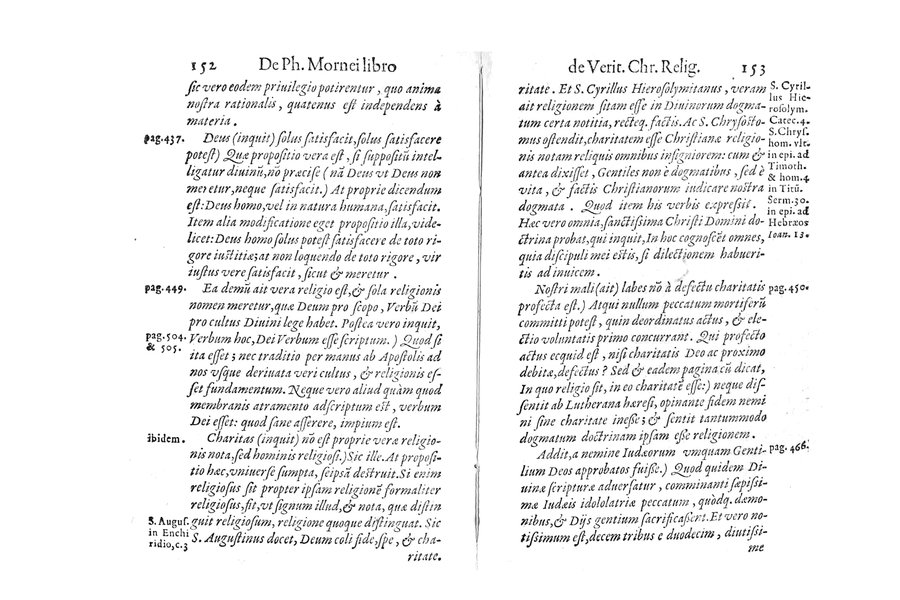 152 De Ph. Mornei libro
ſic vero eodem priuilegio potirentur, quo anima
noſtra rationalis, quatenus eſt independens à
materia.
pag.437. Deus (inquit) ſolus ſatisfacit, ſolus ſatisfacere
poteſt) Quæ propoſitio vera eſt, ſi ſuppoſitũ intel-
ligatur diuinũ, nõ præciſe (nã Deus vt Deus non
meretur, neque ſatisfacit.) At proprie dicendum
eſt: Deus homo, vel in natura humana, ſatisfacit.
Item alia modificatione eget propoſitio illa, vide-
licet: Deus homo ſolus poteſt ſatisfacere de toto ri-
gore iuſtitiæ; at non loquendo de toto rigore, vir
iuſtus vere ſatisfacit, ſicut & meretur.
pag.449. Ea demũ ait vera religio eſt, & ſola religionis
nomen meretur, quæ Deum pro ſcopo, Verbũ Dei
pro cultus Diuini lege habet. Poſtea vero inquit,
pag.504. & 505. Verbum hoc, Dei Verbum eſſe ſcriptum.) Quod ſi
ita eſſet; nec traditio per manus ab Apoſtolis ad
nos vſque deriuata veri cultus, & religionis eſ-
ſet fundamentum. Neque vero aliud quàm quod
membranis atramento adſcriptum eſt, verbum
Dei eſſet: quod ſane aſſerere, impium eſt.
ibidem. Charitas (inquit) nõ eſt proprie veræ religio-
nis nota, ſed hominis religioſi.) Sic ille. At propoſi-
tio hæc, vniuerſe ſumpta, ſeipſã deſtruit. Si enim
religioſus ſit propter ipſam religionẽ formaliter
religioſus, ſit, vt ſignum illud, & nota, quæ diſtin
S. Auguſ. in Enchi ridio, c.3 guit religioſum, religione quoque diſtinguat. Sic
S. Auguſtinus docet, Deum coli fide, ſpe, & cha-
ritate.
de Verit. Chr. Relig. 153
ritate. Et S. Cyrillus Hieroſolymitanus, veram
ait religionem ſitam eſſe in Diuinorum dogma-
tum certa notitia, recteq. factis. Ac S. Chryſoſto-
mus oſtendit, charitatem eſſe Chriſtianæ religio-
nis notam reliquis omnibus inſigniorem: cum &
antea dixiſſet, Gentiles non è dogmatibus, ſed è
vita, & factis Chriſtianorum iudicare noſtra
dogmata. Quod item his verbis expreſſit.
Hæc vero omnia, ſanctiſſima Chriſti Domini do-
ctrina probat, qui inquit, In hoc cognoſcẽt omnes,
quia diſcipuli mei eſtis, ſi dilectionem habueri-
tis ad inuicem.
S. Cyril-
lus Hie-
roſolym.
Catec.4.
S. Chryſ.
hom. vlt.
in epi. ad
Timoth.
& hom.4
in Titũ.
Serm.30.
in epi. ad
Hebræos
Ioan. 13.
Noſtri mali (ait) labes nõ à defectu charitatis pag.450.
profecta eſt.) Atqui nullum peccatum mortiferũ
committi poteſt, quin deordinatus actus, & ele-
ctio voluntatis primo concurrant. Qui profecto
actus ecquid eſt, niſi charitatis Deo ac proximo
debitæ, defectus? Sed & eadem pagina cũ dicat,
In quo religio ſit, in eo charitatẽ eſſe:) neque diſ-
ſentit ab Lutherana hæreſi, opinante fidem nemi
ni ſine charitate ineſſe; & ſentit tantummodo
dogmatum doctrinam ipſam eſſe religionem.
Addit, a nemine Iudæorum vmquam Genti- pag.466.
lium Deos approbatos fuiſſe.) Quod quidem Di-
uinæ ſcripturæ aduerſatur, comminanti ſæpiſſi-
mæ Iudæis idololatriæ peccatum, quòdq. dæmo-
nibus, & Dijs gentium ſacrificaſſent. Et vero no-
tiſſimum eſt, decem tribus e duodecim, diutiſſi-
me